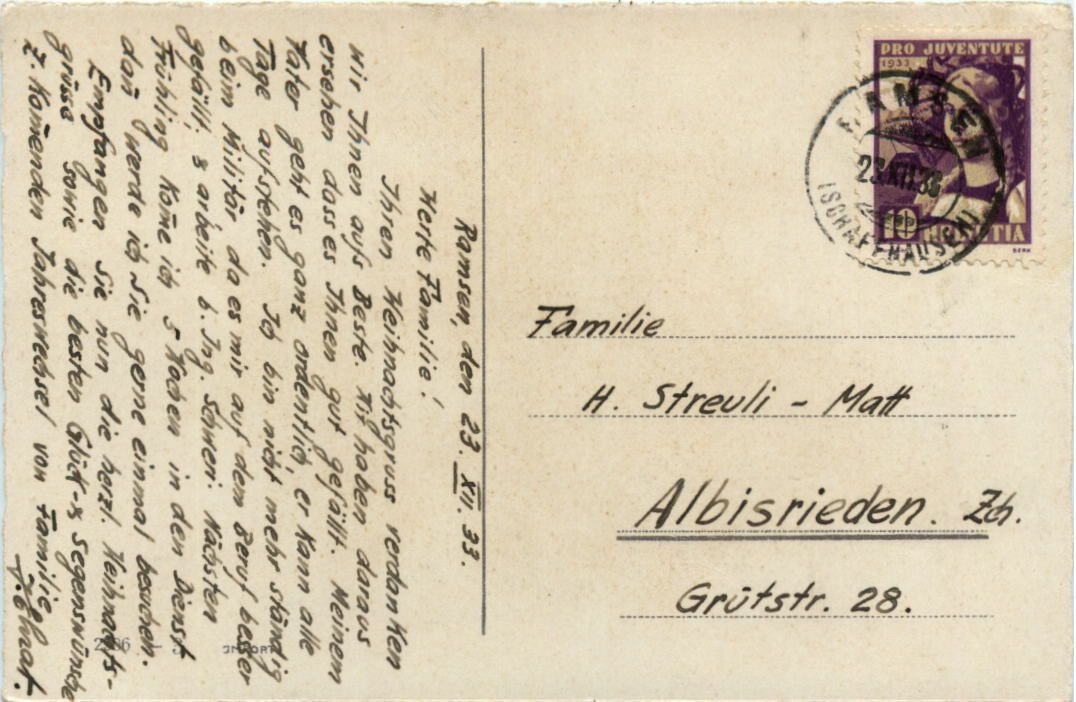 Ramsen, den 23. XII. 33.
Werte Familie!
Ihren Weihnachtsgruss verdanken
wir Ihnen aufs Beste. Wir haben daraus
ersehen dass es Ihnen gut gefällt. Meinem
Vater geht es ganz ordentlich, er kann alle
Tage aufstehen. Ich bin nicht mehr ständig
beim Militär, da es mir auf dem Beruf besser
gefällt, & arbeite b. Ing. Schneri. Nächsten
Frühling kom̄e ich 5 Wochen in den Dienst
dan̄ werde ich Sie gerne einmal besuchen.
Empfangen Sie nun die herzl. Weihnachts-
grüsse sowie die besten Glück- & Segenswünsche
z. kom̄enden Jahreswechsel von Familie
PRO JUVENTUTE
1933
10 HELVETIA
BERN
RAMSEN
23.XII.33
(SCHAFFHAUSEN)
Familie
H. Streuli - Matt
Albisrieden. Zch.
Grütstr. 28.
IMPORT